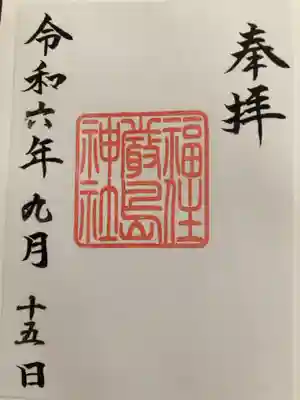 奉拝
福住
厳島
神社
令和六年九月十五日